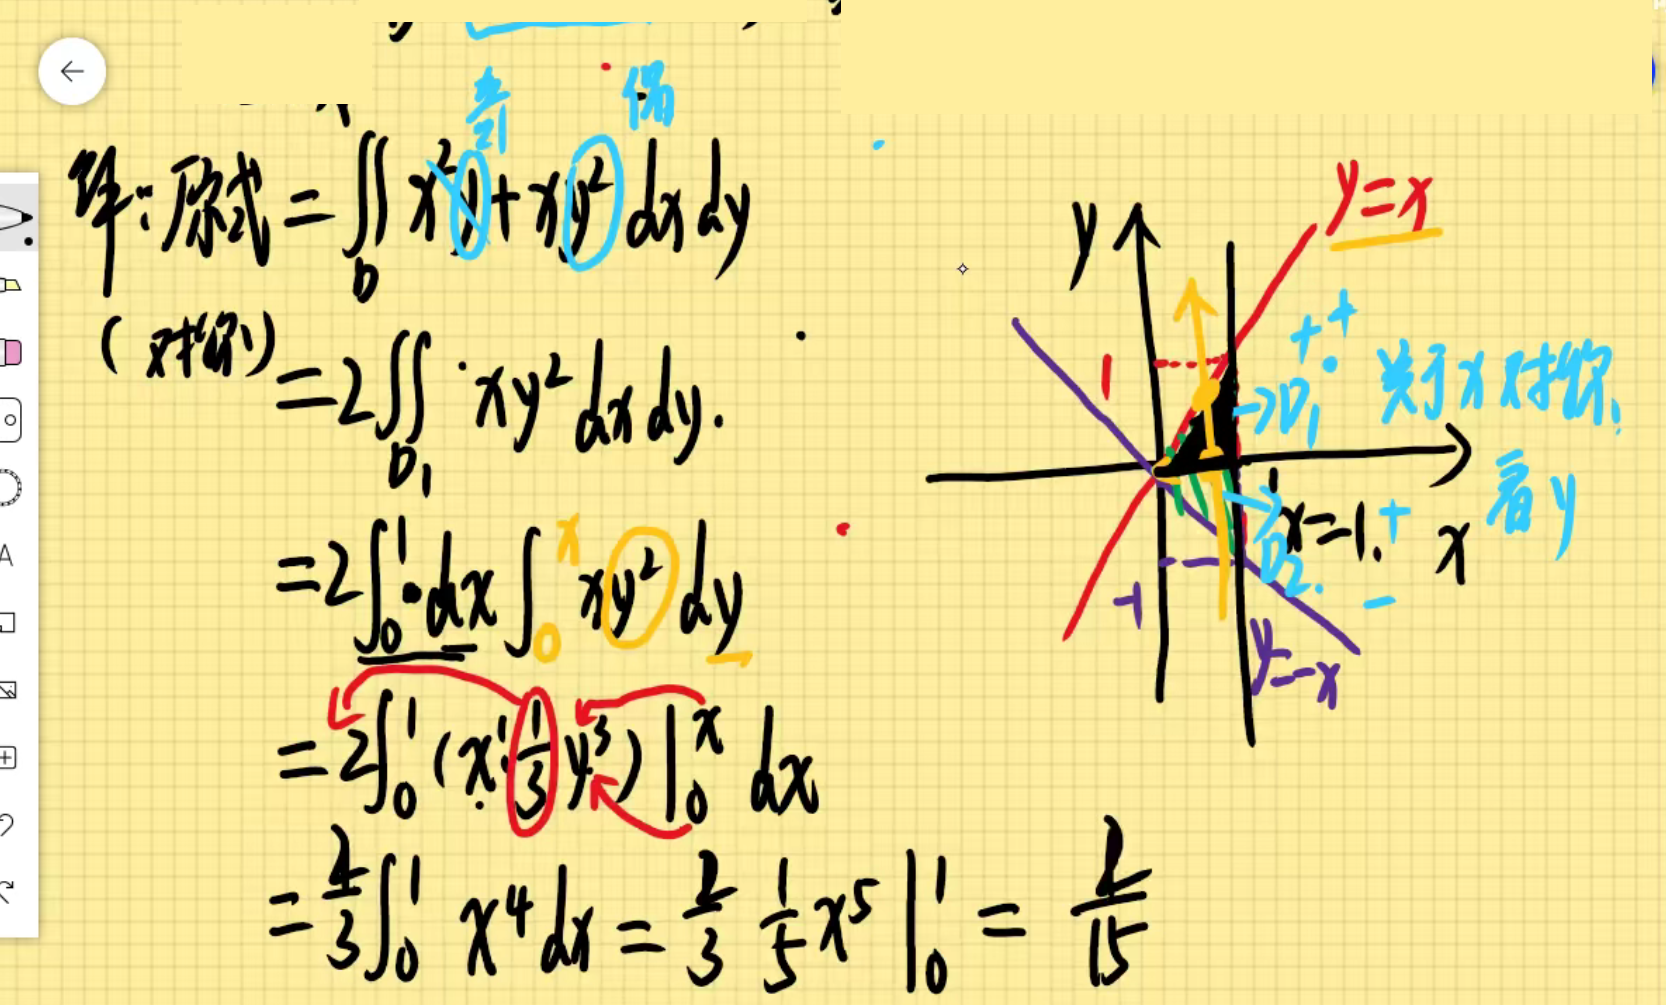 奇 偶
解:原式 = ∬_D x²y + xy² dx dy
(对称) = 2∬_{D₁} xy² dx dy.
= 2∫₀¹ dx ∫₀ˣ xy² dy
= 2∫₀¹ (x · 1/3 y³)|₀ˣ dx
= 2/3 ∫₀¹ x⁴ dx = 2/3 1/5 x⁵ |₀¹ = 2/15
y
y=x
1
+ +
→D₁
关于x对称,
看y
1
x=1.
+
x
D₂.
-
-1
y=-x
A